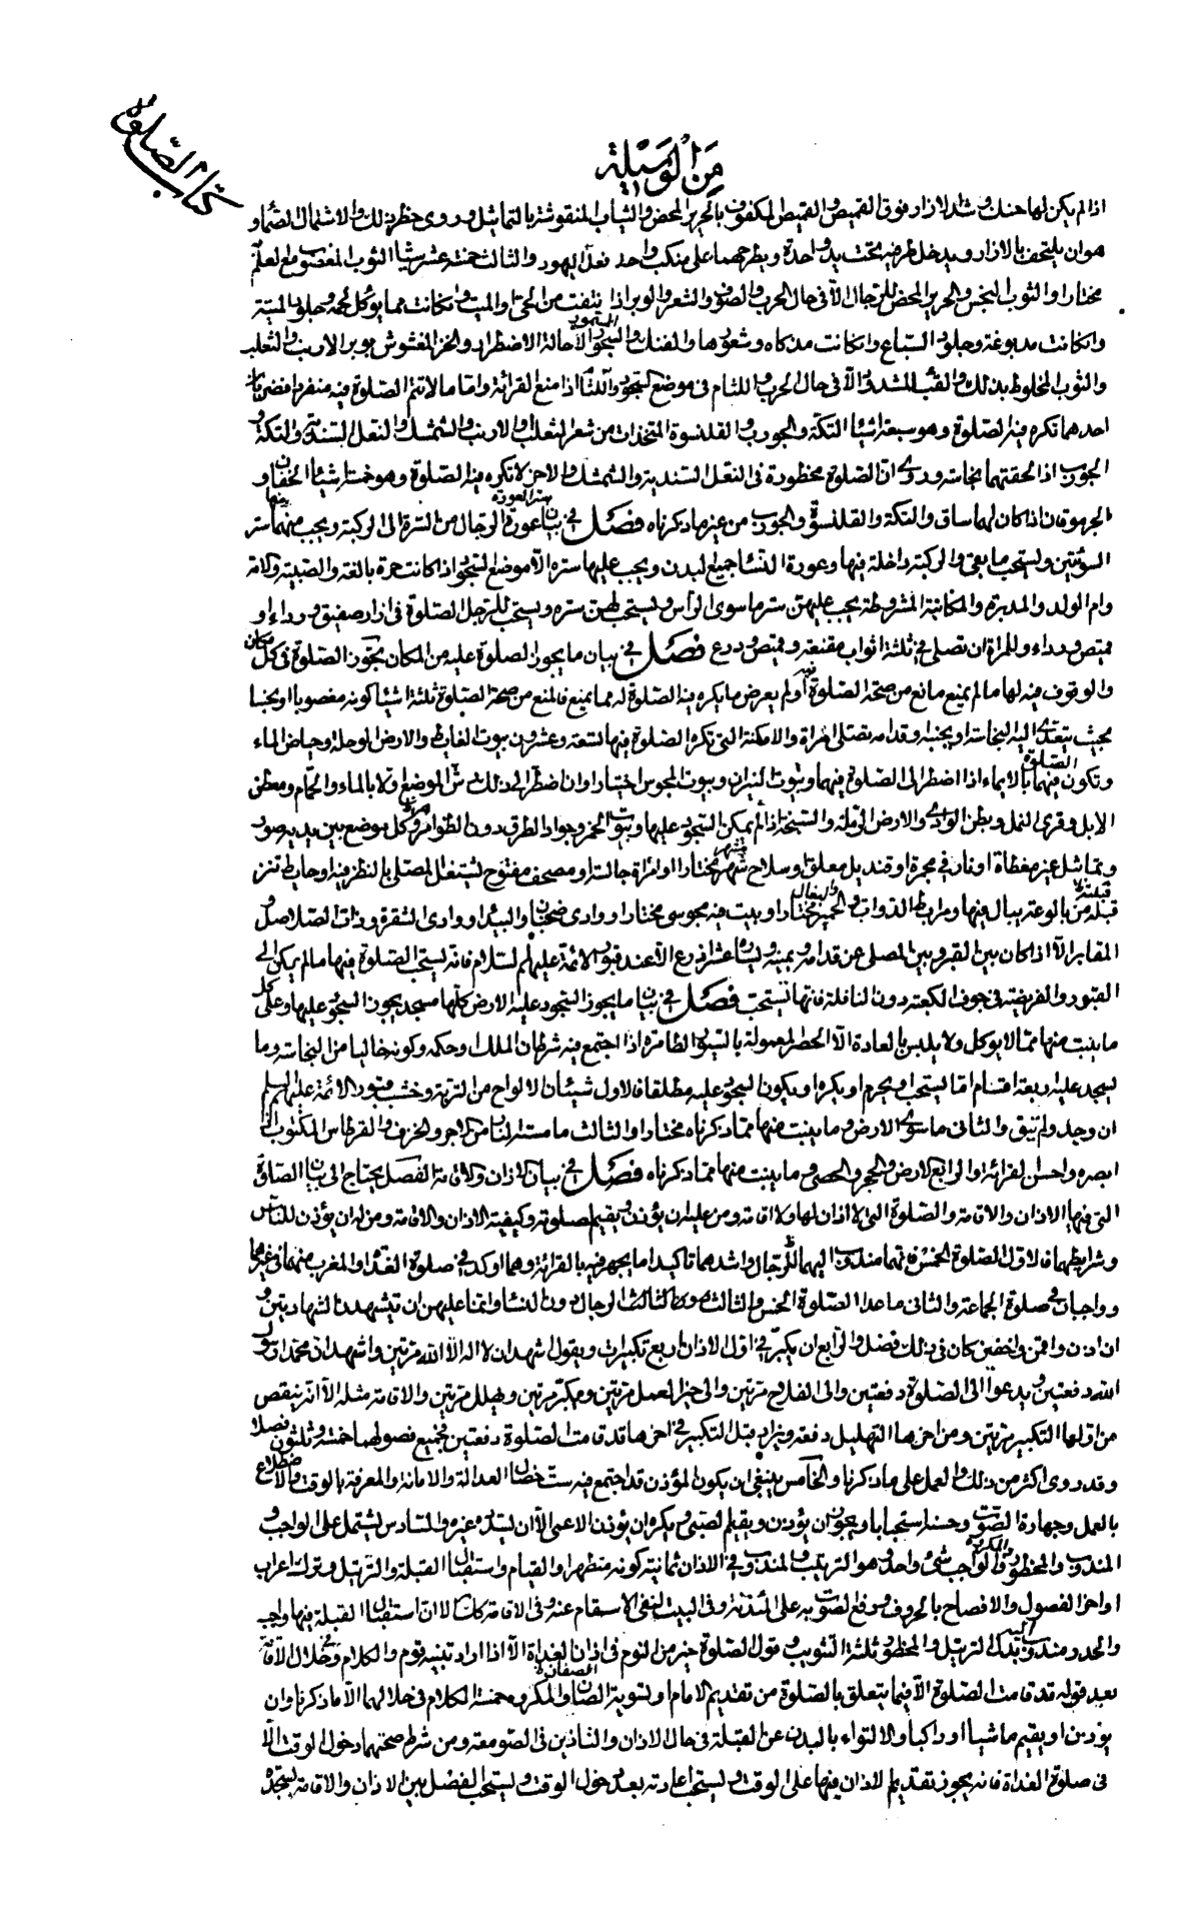 كتاب الصّلوة
مِنَ الْوَسِيلَةِ
اذا لم يكن لها حنك وشد الازار فوق القميص والقميص المكفوف بالحرير المحض والثياب المنقوشة بالتماثيل وروى حظر ذلك والاشتمال الصماء و
هو ان يلتحف بالازار ويدخل طرفيه تحت يد واحدة ويطرحهما على منكب واحد فعل اليهود والثالث خمسة عشر شيئا الثوب المغصوب مع العلم
مختارا والثوب النجس والحرير المحض للرجال الّا فى حال الحرب والصوف والشعر والوبر اذا نتفت من الحى او الميت وان كانت مما يؤكل لحمه وجلود الميتة
وان كانت مدبوغة وجلود السباع وان كانت مذكاه وشعورها والفنك والسمور الّا حالة الاضطرار والخز المغشوش بوبر الارنب والثعلب
والثوب المخلوط بذلك والقباء المشدود الّا فى حال الحرب واللثام فى موضع السجود والنساء اذا منع القرائة واما ما لا تتم الصلوة فيه منفردا فضربان
احدهما تكره فيه الصلوة وهو سبعة اشياء التكة والجورب والقلنسوة المتخذات من شعر الثعلب والارنب والشمشك والنعل السندية والتكة و
الجورب اذا لحقتهما نجاسة وروى ان الصلوة محظورة فى النعل السندية والشمشك والاخر لا تكره فيه الصلوة وهو خمسة اشياء الخفان و
الجرموقان اذا كان لهما ساق والتكة والقلنسوة والجورب من غير ما ذكرناه فصل فى بيان ستر العورة عورة الرجال من السرة الى الركبة ويجب منها ستر
السوئتين ويستحب ما بقى والركبة داخلة فيها وعورة النساء جميع البدن ويجب عليها ستره الّا موضع السجود اذا كانت حرة بالغة والصبية والامة
وام الولد والمدبرة والمكاتبة المشروطة يجب عليهن ستر ما سوى الرأس ويستحب لهن ستره ويستحب للرجل الصلوة فى ازار صفيق ورداء او
قميص ورداء وللمراة ان تصلى فى ثلثة اثواب مقنعة وقميص ودرع فصل فى بيان ما يجوز الصلوة عليه من المكان يجوز الصلوة فى كل مكان
والوقوف فيه لها ما لم يمنع مانع من صحة الصلوة فيه او لم يعرض ما يكره فيه الصلوة له مما يمنع فالمنع من صحة الصلوة ثلثة اشياء كونه مغصوبا او نجسا
بحيث يتعدى اليه النجاسة او بجنبه وقدامه تصلى امراة والامكنة التى تكره الصلوة فيها تسعة وعشرون بيوت الغايط والارض الوحلة وحياض الماء
وتكون الصلوة فيهما بالايماء اذا اضطر الى الصلوة فيهما وبيوت النيران وبيوت المجوس اختيارا وان اضطر الى ذلك رش الموضع اولا بالماء والحمام ومعطن
الابل وقرى النمل وبطن الوادى والارض الرملة والسبخة اذا لم يمكن السجود عليها وبيوت الخمر وجواد الطرق دون الظواهر وكل موضع بين يديه صور
وتماثيل غير مغطاة او نار فى مجمرة او قنديل معلق او سلاح مشهر مختارا او امراة جالسة او مصحف مفتوح ليشتغل المصلى بالنظر فيه او حايط تنز
قبله من بالوعة يبال فيها ومرابط الدواب والحمير والبغال مختارا وبيت فيه مجوسى مختارا ووادى ضجنان والبيداء ووادى الشقرة وذات الصلاصل و
المقابر الّا اذا كان بين القبر وبين المصلى عن قدامه ويمينه ويساره عشر اذرع الّا عند قبور الائمة عليهم السلام فانه يستحب الصلوة فيها ما لم يكن الى
القبور والفريضة فى جوف الكعبة دون النافلة فانها تستحب فصل فى بيان ما يجوز السجود عليه الارض كلها مسجد يجوز السجود عليها وعلى كل
ما ينبت منها مما لا يؤكل ولا يلبس بالعادة الّا الحصر المعمولة بالسيور الظاهرة اذا اجتمع فيه شرطان الملك وحكمه وكونه خاليا من النجاسة وما
يسجد عليه اربعة اقسام اما يستحب او يحرم او يكره او يكون السجود عليه مطلقا فالاول شيئان الالواح من التربة وخشب قبور الائمة عليهم السلم
ان وجد ولم يتق والثانى ما سوى الارض وما ينبت منها مما ذكرناه مختارا والثالث ما مسته النار من الاجر والخزف والقرطاس المكتوب اذا
ابصره واحسن القرائة والرابع الارض والحجر والحصى وما ينبت منها مما ذكرناه فصل فى بيان الاذان والاقامة الفصل يحتاج الى بيان الصلوة
التى فيها الاذان والاقامة والصلوة التى لا اذان لها ولا اقامة ومن عليه ان يؤذن ويقيم لصلوته وكيفية الاذان والاقامة ومن له ان يؤذن للناس
وشرايطهما فالاول الصلوة الخمس فانهما مندوب اليهما للرجال واشدهما تاكيدا ما يجهر فيه بالقرائة وهما اوكد فى صلوة الغداة والمغرب منهما فى غيرهما
وواجبان فى صلوة الجماعة والثانى ما عدا الصلوة الخمس والثالث الرجال دون النساء وانما عليهن ان يتشهدن الشهادتين و
ان اذن واقمن واخفين كان فى ذلك فضل والرابع ان يكبر فى اول الاذان اربع تكبيرات ويقول اشهد ان لا اله الّا الله مرتين واشهد ان محمدا رسول
الله دفعتين ويدعوا الى الصلوة دفعتين والى الفلاح مرتين والى خير العمل مرتين ويكبر مرتين ويهلل مرتين والاقامة مثله الّا انه ينقص
من اولها التكبير مرتين ومن اخرها التهليل دفعة ويزاد قبل التكبير فى اخرها قد قامت الصلوة دفعتين فجميع فصولهما خمسة وثلثون فصلا
وقد روى اكثر من ذلك والعمل على ما ذكرنا والخامس ينبغى ان يكون المؤذن قد اجتمع فيه ست خصال العدالة والامانة والمعرفة بالوقت والاضطلاع
بالعمل وجهارة الصوت وحسنه استحبابا ويجوز ان يؤذن ويقيم الصبى ويكره ان يؤذن الاعمى الّا ان يسدده غيره والسادس يشتمل على الواجب و
المندوب والمحظور والمكروه فالواجب شىء واحد وهو الترتيب والمندوب فى الاذان ثمانية كونه متطهرا والقيام واستقبال القبلة والترتيل وترك اعراب
اواخر الفصول والافصاح بالحروف ورفع الصوت به على المئذنة وفى البيت لنفى الاسقام عنه وفى الاقامة كذلك الّا ان استقبال القبلة فيها واجب
والحدر مندوب اليه بدل الترتيل والمحظور ثلثة التثويب وقول الصلوة خير من النوم فى اذان الغداة الّا اذا اراد تنبيه قوم والكلام فى خلال الاقامة
بعد قوله قد قامت الصلوة الّا فيما يتعلق بالصلوة من تقديم الامام او تسوية الصفان والمكروه خمسة الكلام فى خلالهما الّا ما ذكرنا وان
يؤذن او يقيم ماشيا او راكبا والالتواء بالبدن عن القبلة فى حال الاذان والتاذين فى الصومعة ومن شرط صحتهما دخول الوقت الّا
فى صلوة الغداة فانه يجوز تقديم الاذان فيها على الوقت ويستحب اعادته بعد دخول الوقت ويستحب الفصل بين الاذان والاقامة بسجدة